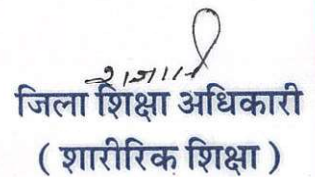 जिला शिक्षा अधिकारी
( शारीरिक शिक्षा )